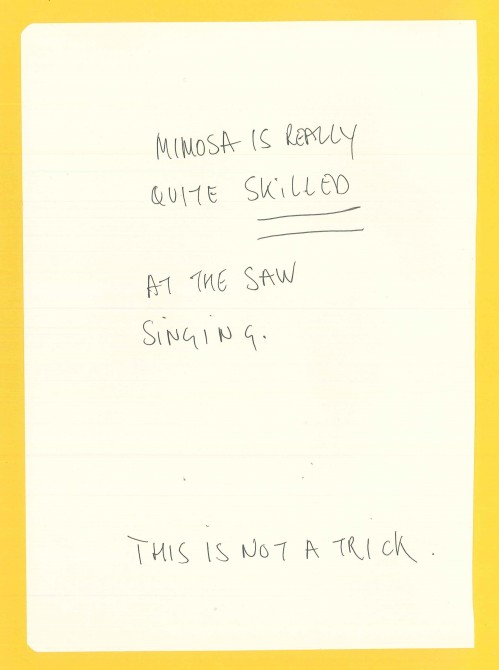 MIMOSA IS REALLY
QUITE SKILLED
AT THE SAW
SINGING.
THIS IS NOT A TRICK.